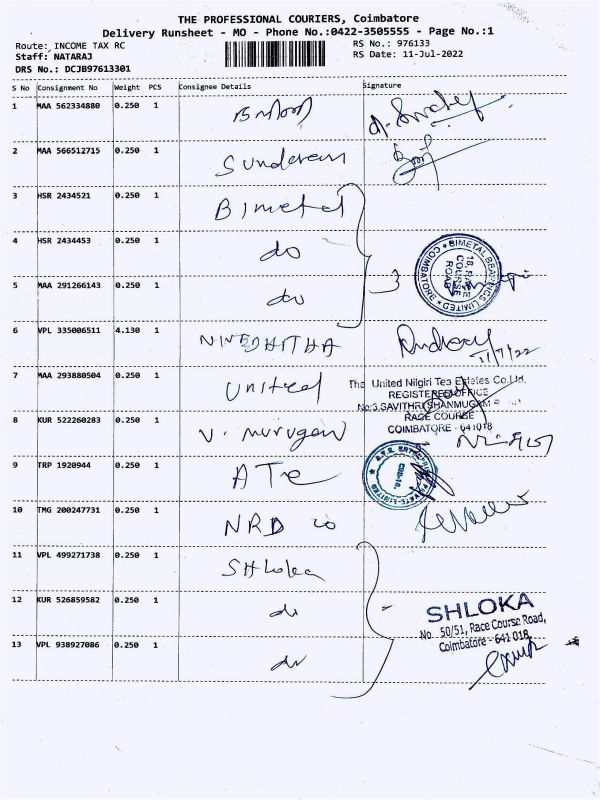 THE PROFESSIONAL COURIERS, Coimbatore
Delivery Runsheet - MO - Phone No.:0422-3505555 - Page No.:1
Route: INCOME TAX RC
RS No.: 976133
Staff: NATARAJ
RS Date: 11-Jul-2022
DRS No.: DCJB97613301
S No Consignment No Weight PCS Consignee Details Signature
1 MAA 562334880 0.250 1
2 MAA 566512715 0.250 1 Sundaram
3 HSR 2434521 0.250 1 Bimetal
4 HSR 2434453 0.250 1 do
5 MAA 291266143 0.250 1 do
BIMETAL BEARINGS LIMITED
COIMBATORE
18, RACE
COURSE
ROAD
6 VPL 335006511 4.130 1 NIVEDHITHA
11/7/22
7 MAA 293880504 0.250 1 United
The United Nilgiri Tea Estates Co.Ltd.
REGISTERED OFFICE
No:3, SAVITHRI SHANMUGAM
RACE COURSE
COIMBATORE - 641018
8 KUR 522260283 0.250 1 V. Murugan
9 TRP 1920944 0.250 1 ATE
A.T.E. ENTERPRISES PRIVATE LIMITED
CBE-18.
10 TMG 200247731 0.250 1 NRD co
11 VPL 499271738 0.250 1 SHloka
12 KUR 526859582 0.250 1 do
SHLOKA
No. 50/51, Race Course Road,
Coimbatore - 641 018.
13 VPL 938927086 0.250 1 do